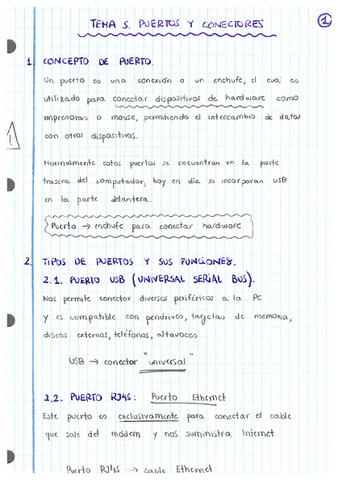 TEMA 5. PUERTOS Y CONECTORES
1
1. CONCEPTO DE PUERTO.
Un puerto es una conexión o un enchufe, el cual es
utilizado para conectar dispositivos de hardware como
impresoras o mouse, permitiendo el intercambio de datos
con otros dispositivos.
Normalmente estos puertos se encuentran en la parte
trasera del computador, hoy en día se incorporan USB
en la parte delantera.
Puerto → enchufe para conectar hardware
2. TIPOS DE PUERTOS Y SUS FUNCIONES.
2.1. PUERTO USB (UNIVERSAL SERIAL BUS).
Nos permite conectar diversos periféricos a la PC
y es compatible con pendrives, tarjetas de memoria,
discos externos, teléfonos, altavoces.
USB → conector "universal"
2.2. PUERTO RJ45: Puerto Ethernet
Este puerto es exclusivamente para conectar el cable
que sale del módem y nos suministra Internet.
Puerto RJ45 → cable Ethernet